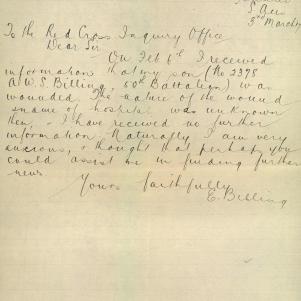 S Aus
3rd March
To the Red Cross Inquiry Office
Dear Sir
On Feb 6th I received
information that my son (No 2378
A.W.S. Billing, 50th Battalion) was
wounded. The nature of the wound
& name of hospital was unknown
then, & I have received no further
information. Naturally I am very
anxious, & thought that perhaps you
could assist me in finding further
news
Yours faithfully
E. Billing